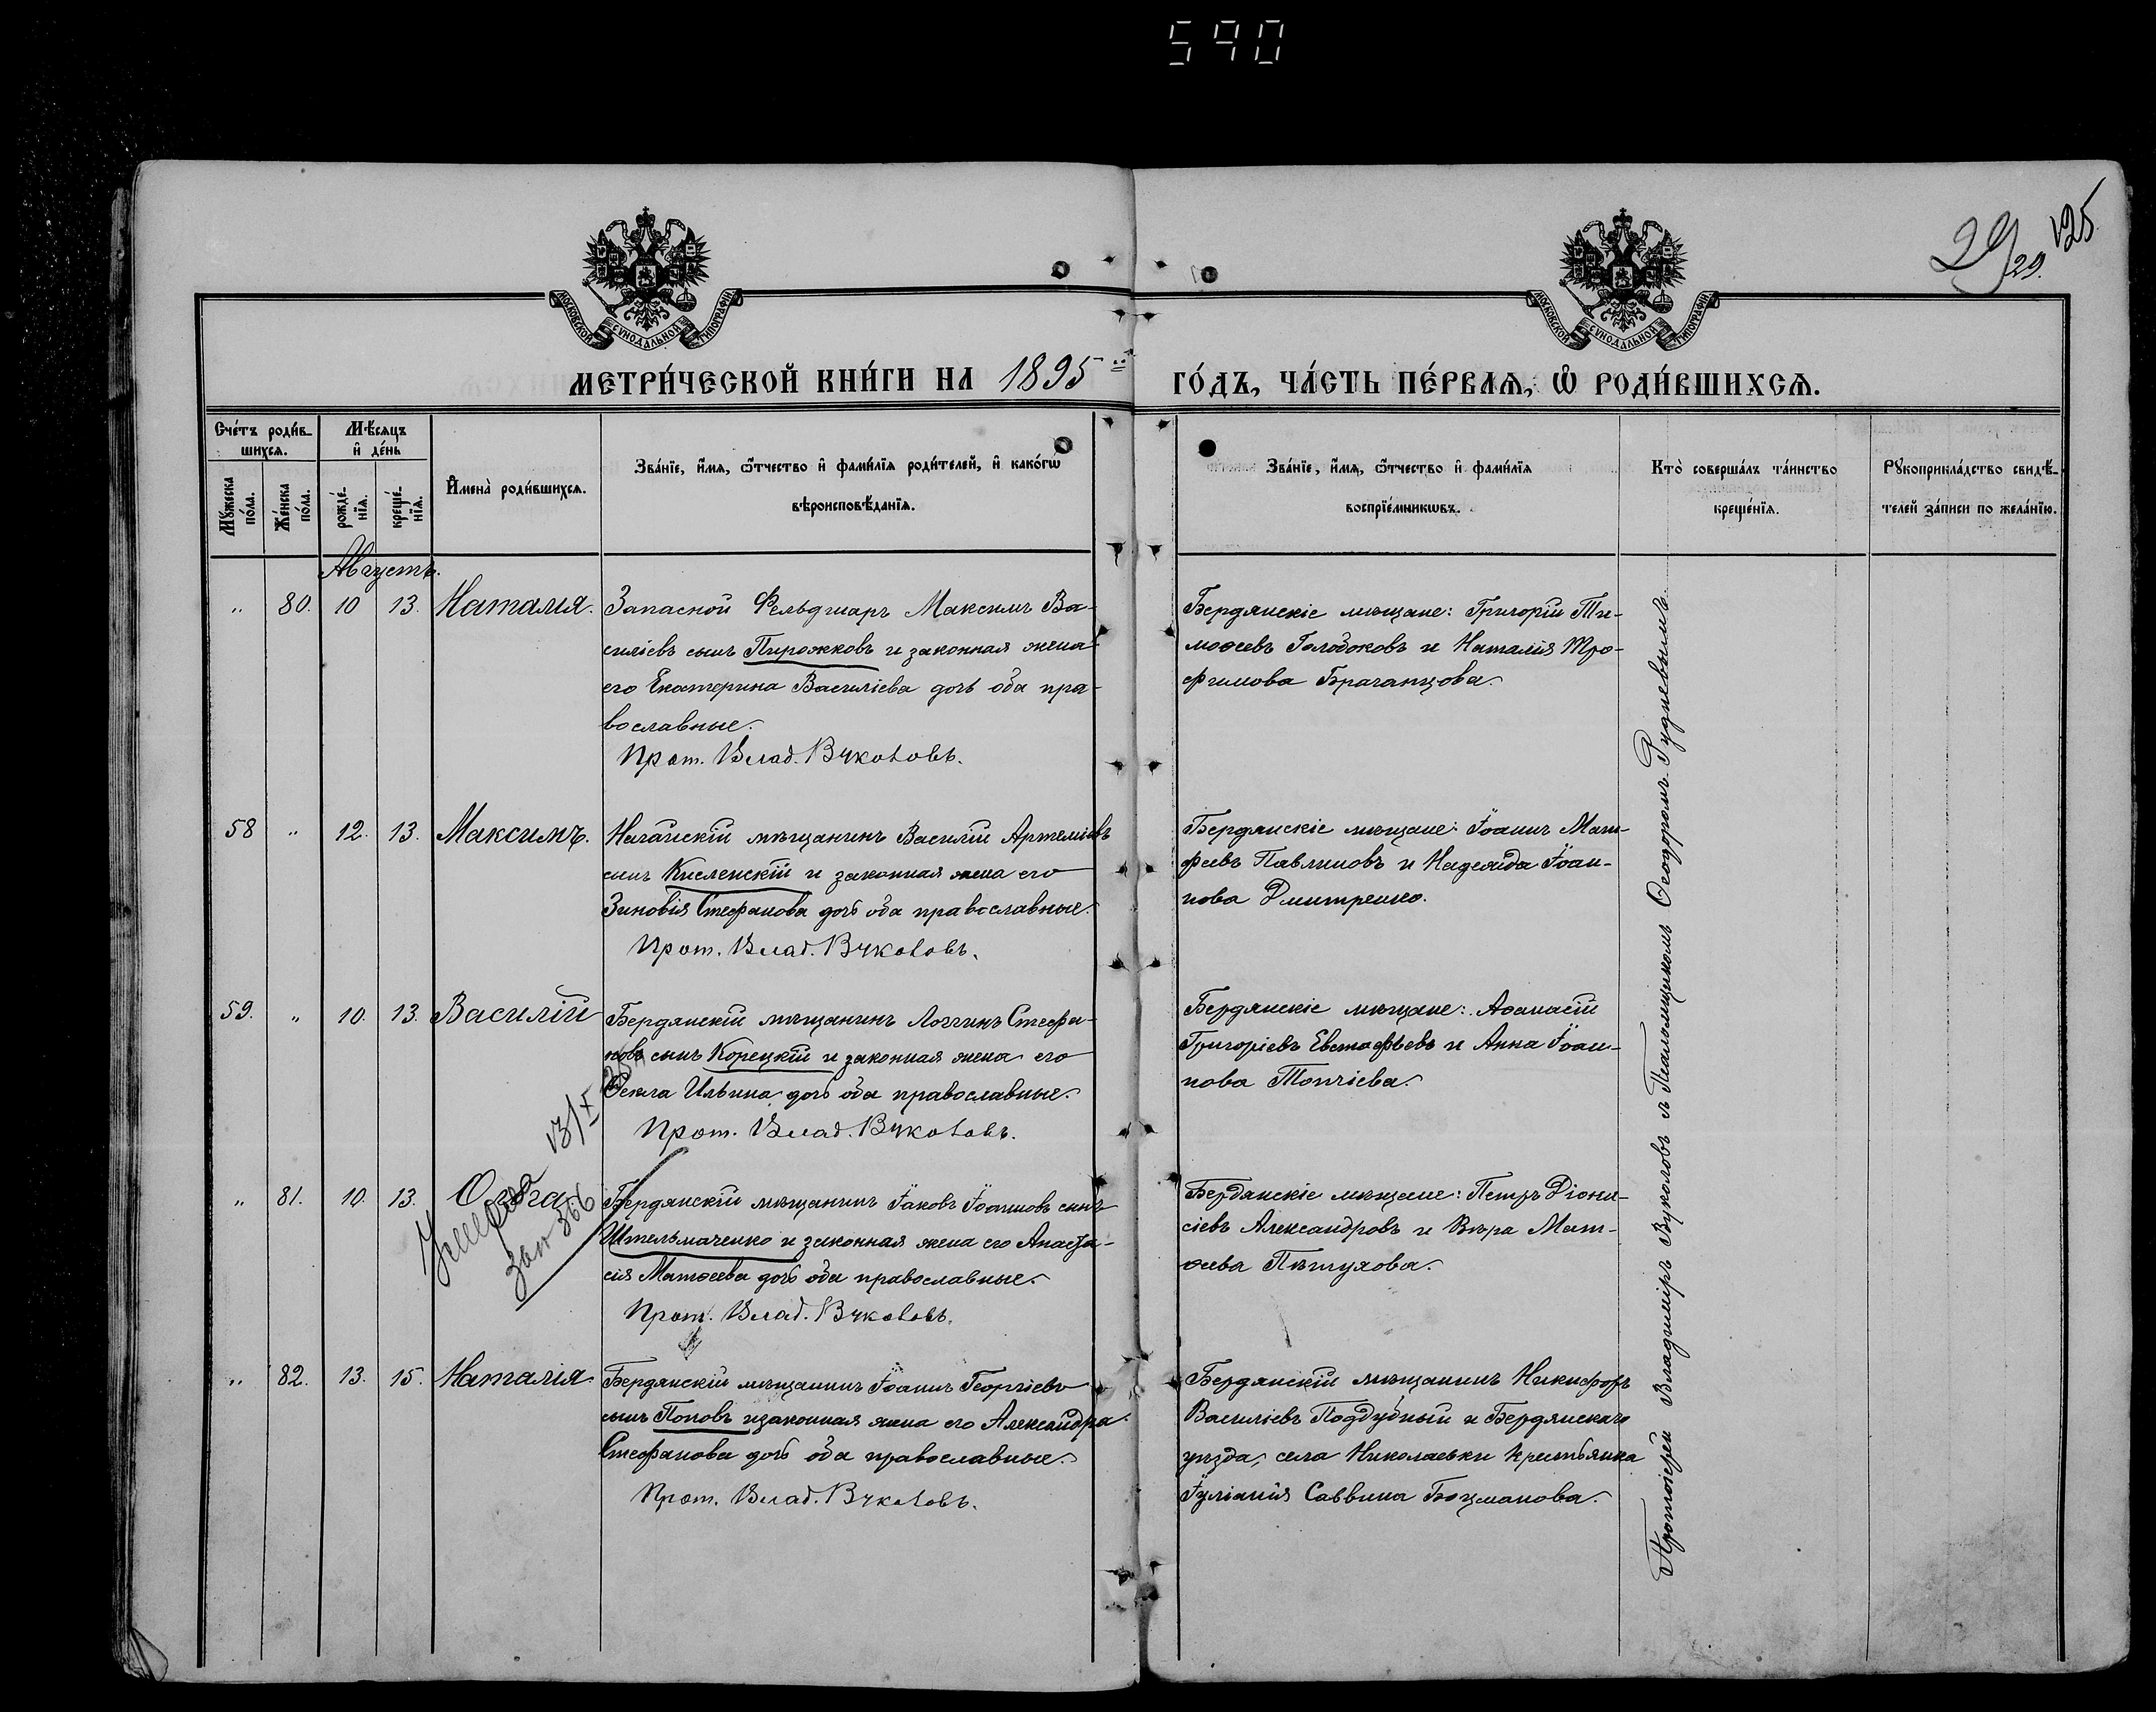 590
29/29. 125.
МОСКОВСКОЙ СѴНОДАЛЬНОЙ ТИПОГРАФІИ
МОСКОВСКОЙ СѴНОДАЛЬНОЙ ТИПОГРАФІИ
МЕТРИ́ЧЕСКОЙ КНИ́ГИ НА 1895 й ГО́ДЪ, ЧА́СТЬ ПЕ́РВАѦ, Ѽ РОДИ́ВШИХСѦ.
Сче́тъ роди́в-
шихсѧ.
Мꙋ́жеска по́ла.
Же́нска по́ла.
Мѣ́сѧцъ
и҆ де́нь
рожде́-
нїѧ.
креще́-
нїѧ.
И҆мена̀ роди́вшихсѧ.
Зва́нїе, и҆́мѧ, ѻ҆́тчество и҆ фами́лїѧ роди́телей, и҆ како́гѡ
вѣроисповѣ́данїѧ.
Зва́нїе, и҆́мѧ, ѻ҆́тчество и҆ фами́лїѧ
воспрїе́мникѡвъ.
Кто̀ соверша́лъ та́инство
креще́нїѧ.
Рꙋкоприкла́дство свидѣ́-
телей за́писи по жела́нїю.
Августъ.
„ 80. 10 13. Наталія.
Запасной Фельдшаръ Максимъ Ва-
силіевъ сынъ Пирожковъ и законная жена
его Екатерина Василіева дочь оба пра-
вославные.
Прот. Влад. Вуколовъ.
Бердянскіе мѣщане: Григорій Ти-
моѳеевъ Голобоковъ и Наталія Тро-
фимова Браганцова.
58 „ 12. 13. Максимъ.
Ногайскій мѣщанинъ Василій Артеміевъ
сынъ Кисленскій и законная жена его
Зиновія Стефанова дочь оба православные.
Прот. Влад. Вуколовъ.
Бердянскіе мѣщане: Іоаннъ Мат-
феевъ Павлиновъ и Надежда Іоан-
нова Дмитренко.
59. „ 10. 13. Василій
Бердянскій мѣщанинъ Логгинъ Стефа-
новъ сынъ Корецкій и законная жена его
Ѳекла Ильина дочь оба православные.
Прот. Влад. Вуколовъ.
Бердянскіе мѣщане: Аѳанасій
Григоріевъ Евстафьевъ и Анна Іоан-
нова Топчіева.
13/X
зап 366
„ 81. 10. 13. Ольга
Бердянскій мѣщанинъ Іаковъ Іоанновъ сынъ
Штельмаченко и законная жена его Анаста-
сія Матѳеева дочь оба православные.
Прот. Влад. Вуколовъ.
Бердянскіе мѣщане: Петръ Діони-
сіевъ Александровъ и Вѣра Мат-
ѳеева Пѣтухова.
„ 82. 13. 15. Наталія
Бердянскій мѣщанинъ Іоаннъ Георгіевъ
сынъ Поповъ и законная жена его Александра
Стефанова дочь оба православные.
Прот. Влад. Вуколовъ.
Бердянскій мѣщанинъ Никифоръ
Василіевъ Поддубный и Бердянскаго
уѣзда, села Николаевки крестьянка
Іуліанія Саввина Боцманова.
Протоіерей Владиміръ Вуколовъ съ Псаломщикомъ Ѳеодоромъ Рудневымъ.